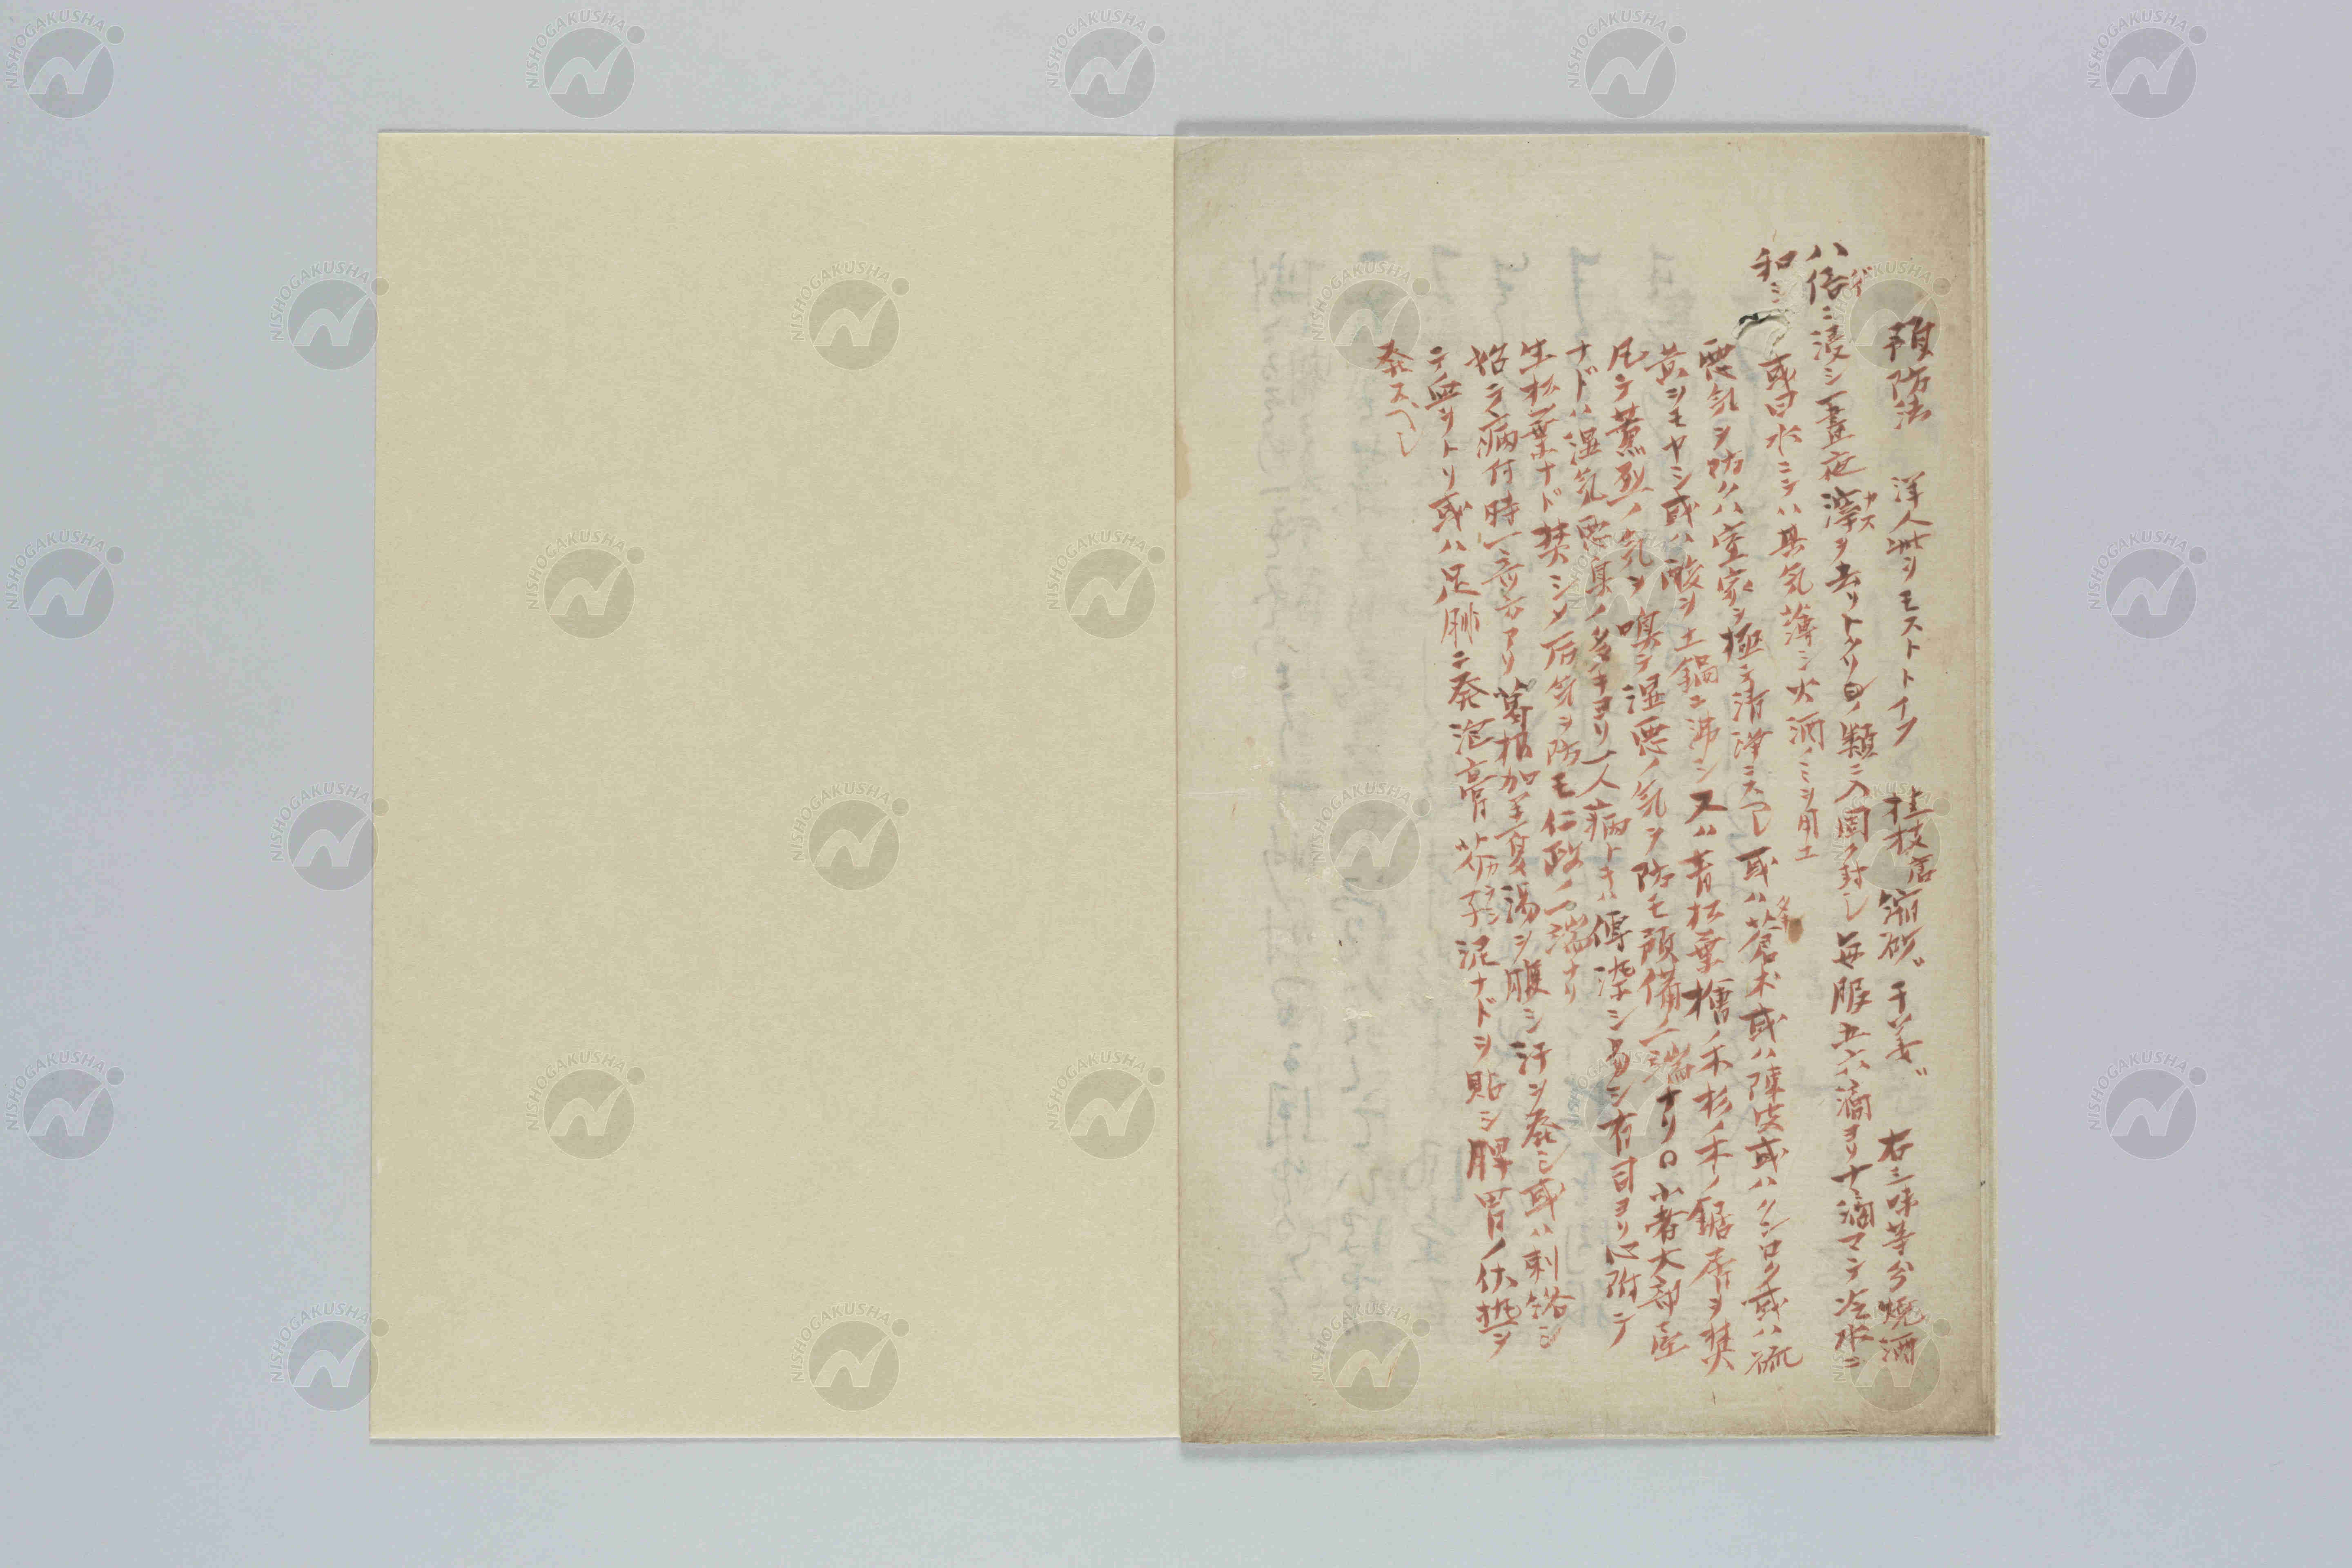 預防法 洋人此ヲモストトイフ 桂枝 縮砂 干姜 右三味等分焼酒
八倍ニ浸シ一昼夜滓ヲ去リトクリ ノ類ニ入固ク封シ毎服五六滴ヨリ十滴マテ冷水ニ
カス
和シ
或曰水ニテハ其気薄シ火酒ノミヲ用ユ
悪気ヲ防クハ室家ヲ極テ清浄ニスヘシ或ハ蒼朮或ハ陳皮或ハクンロク或ハ硫
黄ヲモヤシ或ハ酸ヲ土鍋ニ沸シ又ハ青松葉檜ノ木杉ノ木ノ鋸屑ヲ焚
凡テ薫烈ノ気ヲ嗅テ湿悪ノ気ヲ防モ預備ノ一端ナリ○小者大部
ナドハ湿気悪臭ノ多キヨリ一人病トキハ傳染シ易シ有司ヨリ心附テ
生松葉ナド焚シメ 気ヲ防モ仁政ノ一端ナリ
始テ病付時一ニ方アリ葛根加半夏湯ヲ服シ汗ヲ発シ或ハ刺絡シ
テ血ヲトリ或ハ足 ニ発泡膏芥子泥ナドヲ貼シ脾胃ノ伏熱ヲ
カラシ
発スヘシ
NISHOGAKUSHA